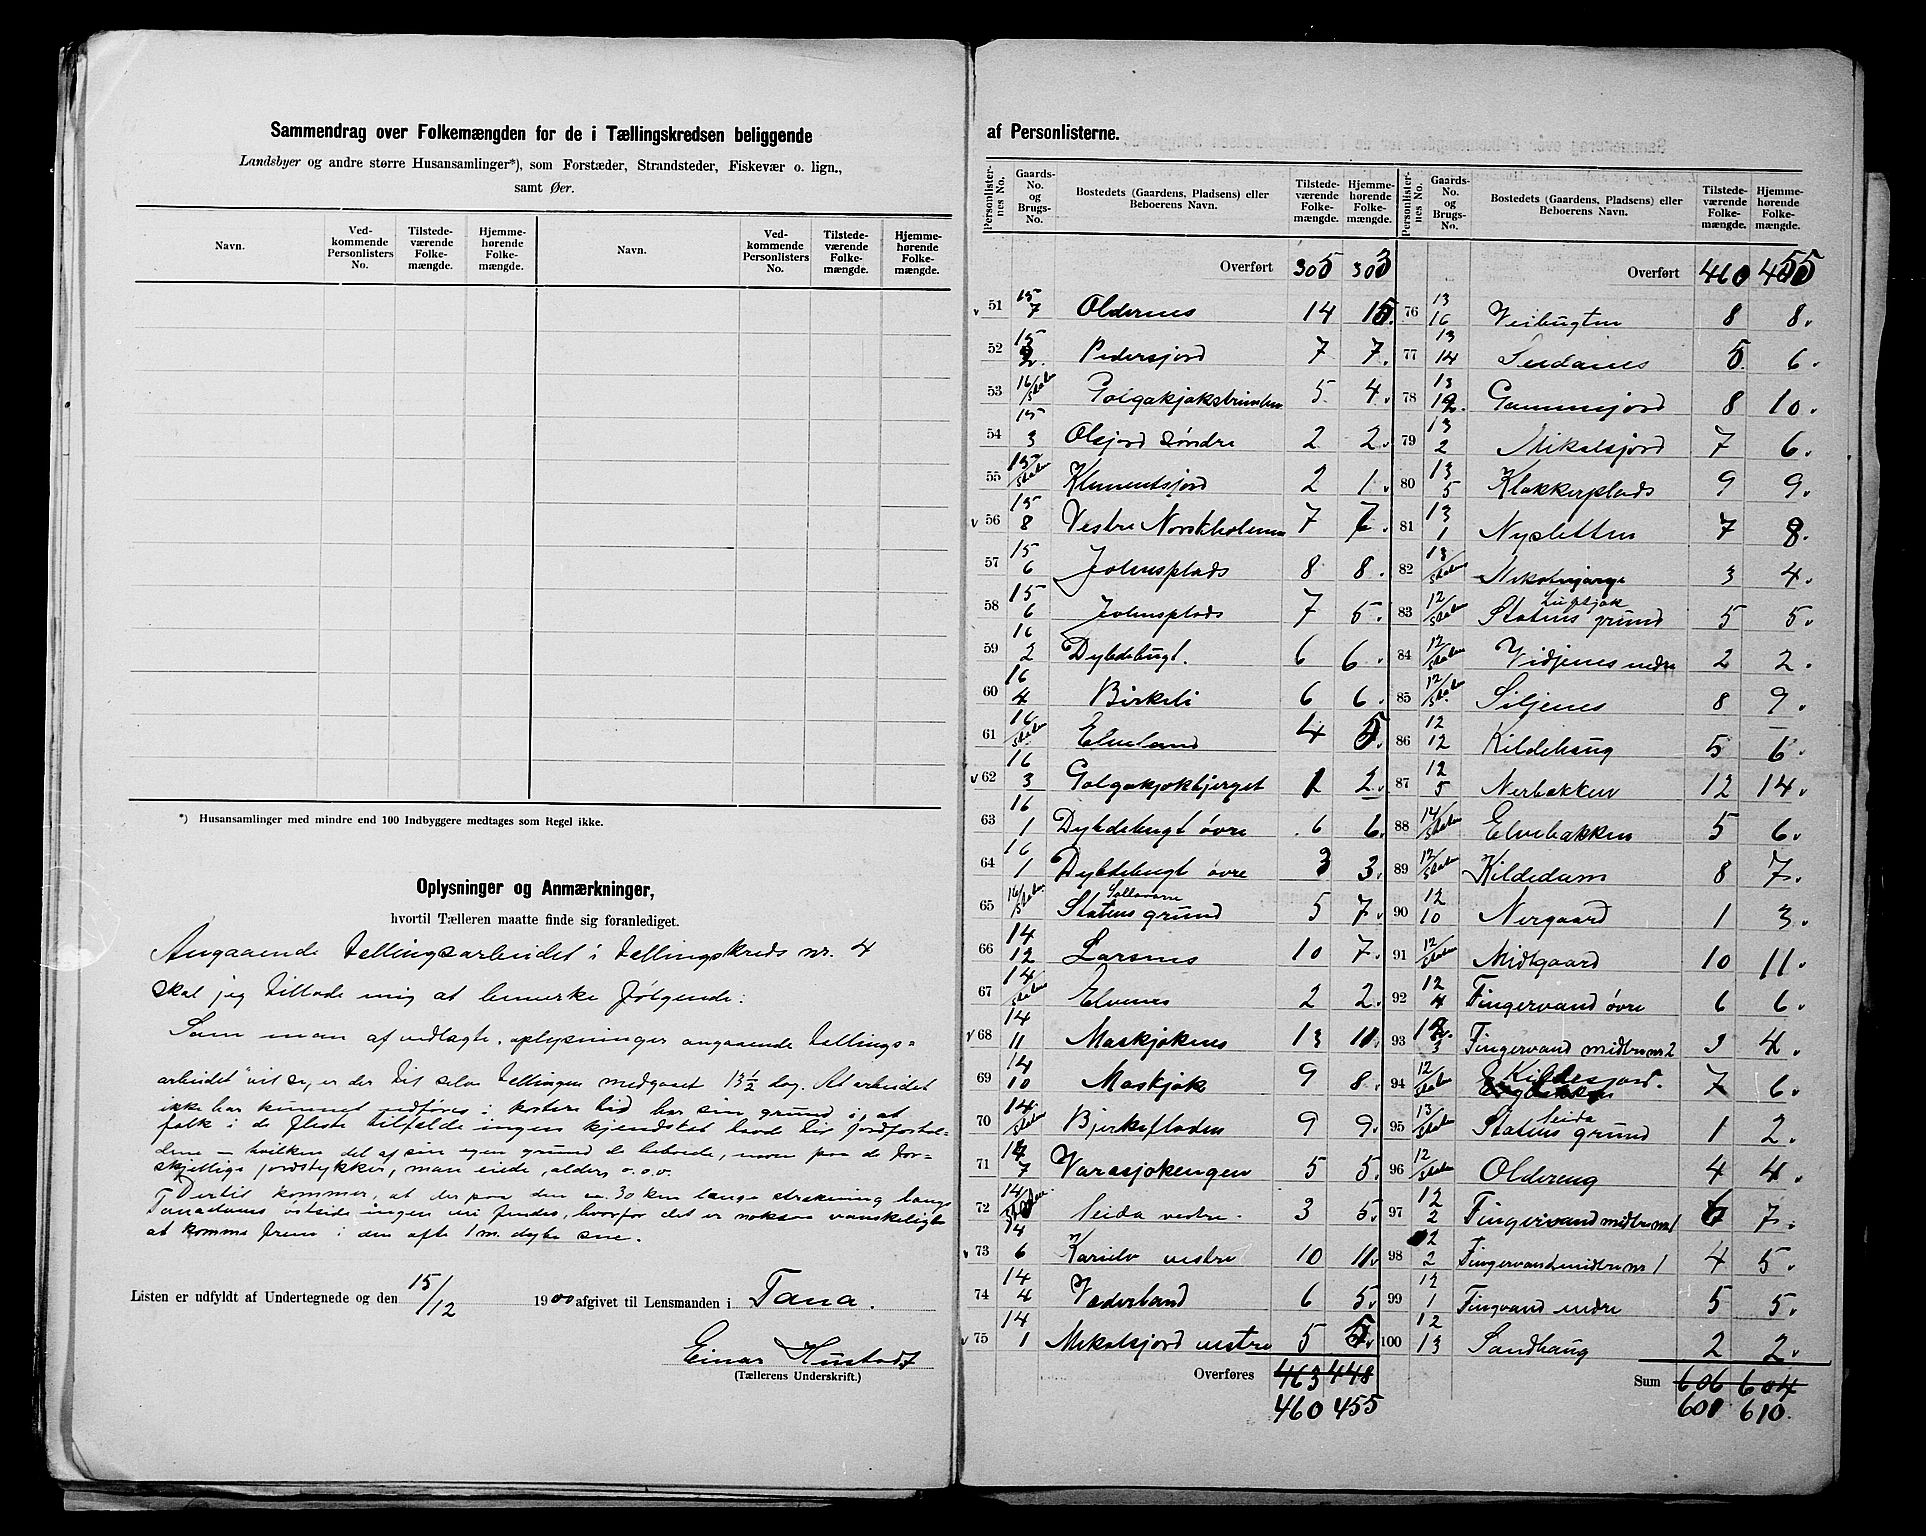 Sammendrag over Folkemængden for de i Tællingskredsen beliggende
Landsbyer og andre større Husansamlinger*), som Forstæder, Strandsteder, Fiskevær o. lign.,
samt Øer.
Navn. Ved-kommende Personlisters No. Tilstede-værende Folke-mængde. Hjemme-hørende Folke-mængde. Navn. Ved-kommende Personlisters No. Tilstede-værende Folke-mængde. Hjemme-hørende Folke-mængde.
*) Husansamlinger med mindre end 100 Indbyggere medtages som Regel ikke.
Oplysninger og Anmærkninger,
hvortil Tælleren maatte finde sig foranlediget.
Angaaende tellingsarbeidet i tellingskreds nr. 4
skal jeg tillade mig at bemerke følgende:
Som man af vedlagte "oplysninger angaaende tellings=
arbeidet" vil se, er der til selve tellingen medgaaet 13 1/2 dag. At arbeidet
ikke har kunnet udføres i kortere tid har sin grund i, at
folk i de fleste tilfælde ingen kjendskab havde til jordfortol-
dene – hvilken del af sin egen grund de beboede, navn paa de for-
skjellige jordstykker, man eiede, alder, o.s.v.
Dertil kommer, at der paa den ca. 30 km lange strækning langs
Tanaelvens østside ingen vei findes, hvorfor det er noksaa vanskeligt
at komme frem i den ofte 1 m. dybe sne.
Listen er udfyldt af Undertegnede og den 15/12 1900 afgivet til Lensmanden i Tana.
Einar Hustad
(Tællerens Underskrift.)
af Personlisterne.
Personlister-nes No. Gaards-No. og Brugs-No. Bostedets (Gaardens, Pladsens) eller Beboerens Navn. Tilstede-værende Folke-mængde. Hjemme-hørende Folke-mængde.
Overført 305 303
51 15/7 Oldernes 14 15.
52 15/2 Pedersjord 7 7.
53 16/Staten Golgakjokstrimlen 5 4
54 15/3 Olsjord søndre 2 2.
55 15/Staten Klementsjord 2 1.
56 15/8 Vestre Norskholmen 7 7.
57 15/6 Johnsplads 8 8.
58 15/6 Johnsplads 7 5.
59 16/2 Dybdebugt. 6 6.
60 16/4 Birkeli 6 6.
61 16/Staten Elveland 4 5.
62 16/3 Golgakjokbjerget 1 2
63 16/1 Dybdebugt øvre 6 6.
64 16/1 Dybdebugt øvre 3 3.
65 16/Staten Statens grund 5 7
66 14/12 Larsnes 10 7.
67 14/Staten Elvenes 2 2.
68 14/11 Maskjoknes 13 11
69 14/10 Maskjok 9 8.
70 14/Staten Bjerkefladen 9 9.
71 14/7 Varasjokengen 5 5.
72 14/Staten Seida vestre. 3 5.
73 14/6 Karielv vestre 10 11
74 14/4 Væderland 6 5.
75 14/1 Mikalsjord vestre 5 5
Overføres 463 448
460 455
Personlister-nes No. Gaards-No. og Brugs-No. Bostedets (Gaardens, Pladsens) eller Beboerens Navn. Tilstede-værende Folke-mængde. Hjemme-hørende Folke-mængde.
Overført 460 455
76 13/16 Veibugten 8 8.
77 13/14 Seidanes 5 6.
78 13/12 Gammesjord 8 10.
79 13/2 Mikalsjord 7 6.
80 13/5 Klokkerplads 9 9.
81 13/1 Nysletten 7 8.
82 13/Staten 3 4.
83 12/Staten Luftjok Statens grund 5 5.
84 12/Staten Vidjenes nedre 2 2.
85 12/Staten Siljenes 8 9.
86 12/12 Kildehaug 5 6.
87 12/5 Nerbakken 12 14.
88 12/Staten Elvebakken 5 6.
89 12/Staten Kildedam 8 7.
90 12/10 Nergaard 1 3.
91 12/Staten Midtgaard 10 11.
92 12/4 Fingervand øvre 6 6.
93 12/3 Fingervand midtre nr 2 3 4.
94 12/Staten Kildesjord. 7 6.
95 13/Staten Seida Statens grund 1 2.
96 12/Staten Oldereng 4 4.
97 12/2 Fingervand midtre nr 1 6 7.
98 12/2 Fingervand midtre nr 1 4 5.
99 12/1 Fingvand nedre 5 5.
100 12/13 Sandhaug 2 2.
Sum 606 604
601 610.